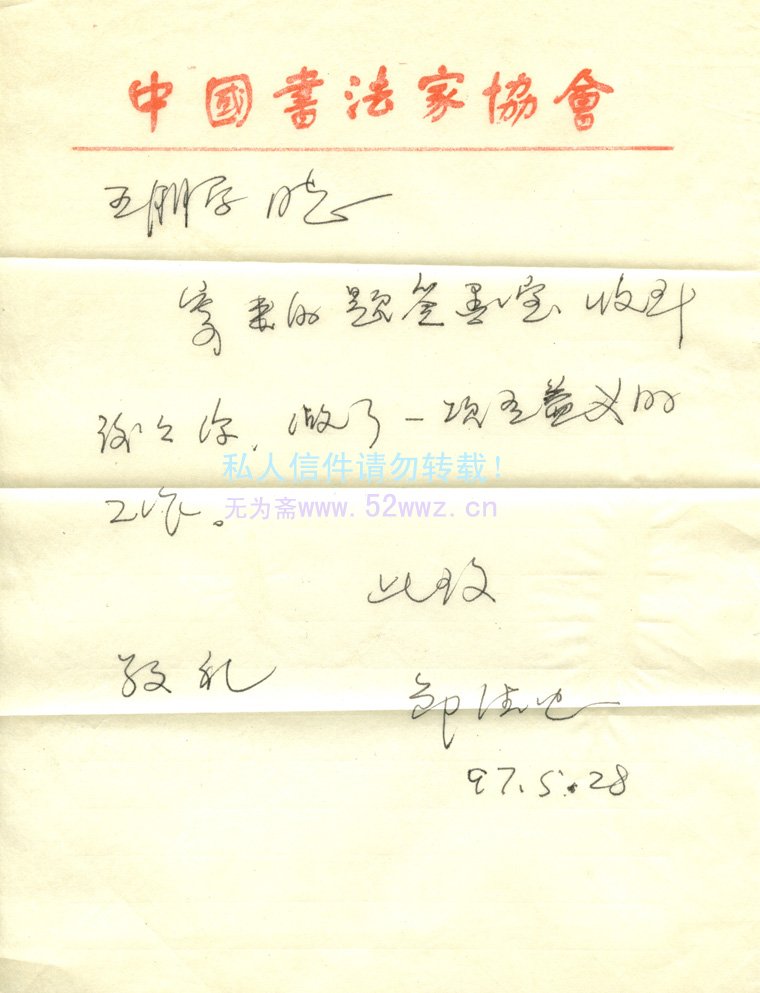 中國書法家協會
王朋学同志
寄来的题签墨宝收到
谢谢你，做了一项有益义的
私人信件请勿转载！
工作。
无为斋www.52wwz.cn
此致
敬礼
97.5.28